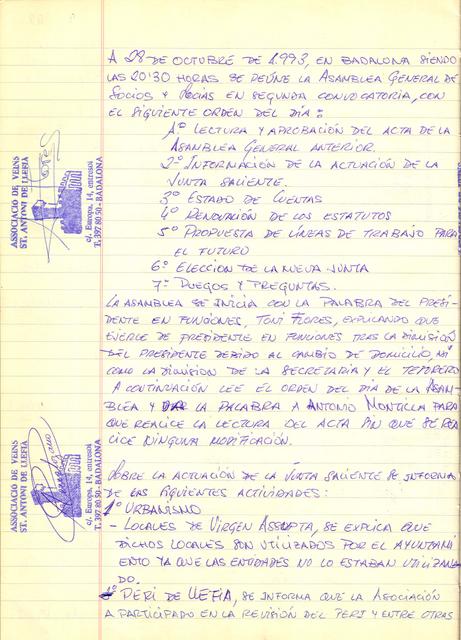 A 28 DE OCTUBRE DE 1.993, EN BADALONA SIENDO
LAS 20'30 HORAS SE REÚNE LA ASAMBLEA GENERAL DE
SOCIOS Y SOCIAS EN SEGUNDA CONVOCATORIA, CON
EL SIGUIENTE ORDEN DEL DIA:
1º LECTURA Y APROBACIÓN DEL ACTA DE LA
ASAMBLEA GENERAL ANTERIOR.
2º INFORMACIÓN DE LA ACTUACIÓN DE LA
JUNTA SALIENTE.
3º ESTADO DE CUENTAS
4º RENOVACIÓN DE LOS ESTATUTOS
5º PROPUESTA DE LÍNEAS DE TRABAJO PARA
EL FUTURO
6º ELECCION DE LA NUEVA JUNTA
7º RUEGOS Y PREGUNTAS.
LA ASAMBLEA SE INICIA CON LA PALABRA DEL PRESI-
DENTE EN FUNCIONES, TONI FLORES, EXPLICANDO QUE
EJERCE DE PRESIDENTE EN FUNCIONES TRAS LA DIMISIÓN
DEL PRESIDENTE DEBIDO AL CAMBIO DE DOMICILIO, ASÍ
COMO LA DIMISION DE LA SECRETARIA Y EL TESORERO
A CONTINUACIÓN LEE EL ORDEN DEL DIA DE LA ASAM-
BLEA Y DA LA PALABRA A ANTONIO MONTILLA PARA
QUE REALICE LA LECTURA DEL ACTA SIN QUE SE REA
LICE NINGUNA MODIFICACIÓN.
SOBRE LA ACTUACIÓN DE LA JUNTA SALIENTE SE INFORMA
DE LAS SIGUIENTES ACTIVIDADES:
1º URBANISMO
- LOCALES DE VIRGEN ASSUMPTA, SE EXPLICA QUE
DICHOS LOCALES SON UTILIZADOS POR EL AYUNTAMI
ENTO YA QUE LAS ENTIDADES NO LO ESTABAN UTILIZAN-
DO.
PERI DE LLEFIA, SE INFORMA QUE LA ASOCIACIÓN
A PARTICIPADO EN LA REVISIÓN DEL PERI Y ENTRE OTRAS
ASSOCIACIO DE VEINS
ST. ANTONI DE LLEFIA
c/. Europa, 14, entresol
T. 397 80 50 - BADALONA
ASSOCIACIO DE VEINS
ST. ANTONI DE LLEFIA
c/. Europa, 14, entresol
T. 397 80 50 - BADALONA